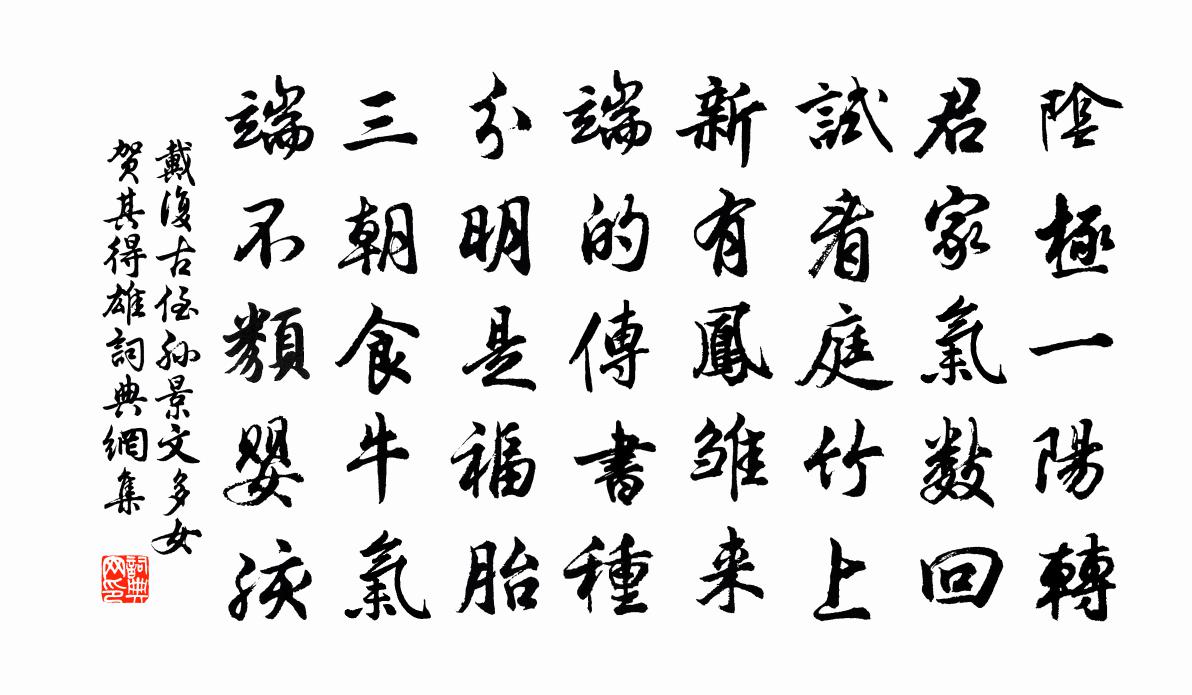 陰極一陽轉
君家氣數回
試看庭竹上
新有鳳雛来
端的傳書種
分明是福胎
三朝食牛氣
端不類嬰孩
戴復古侄孙景文多女
贺其得雄詞典網集
詞典
网印